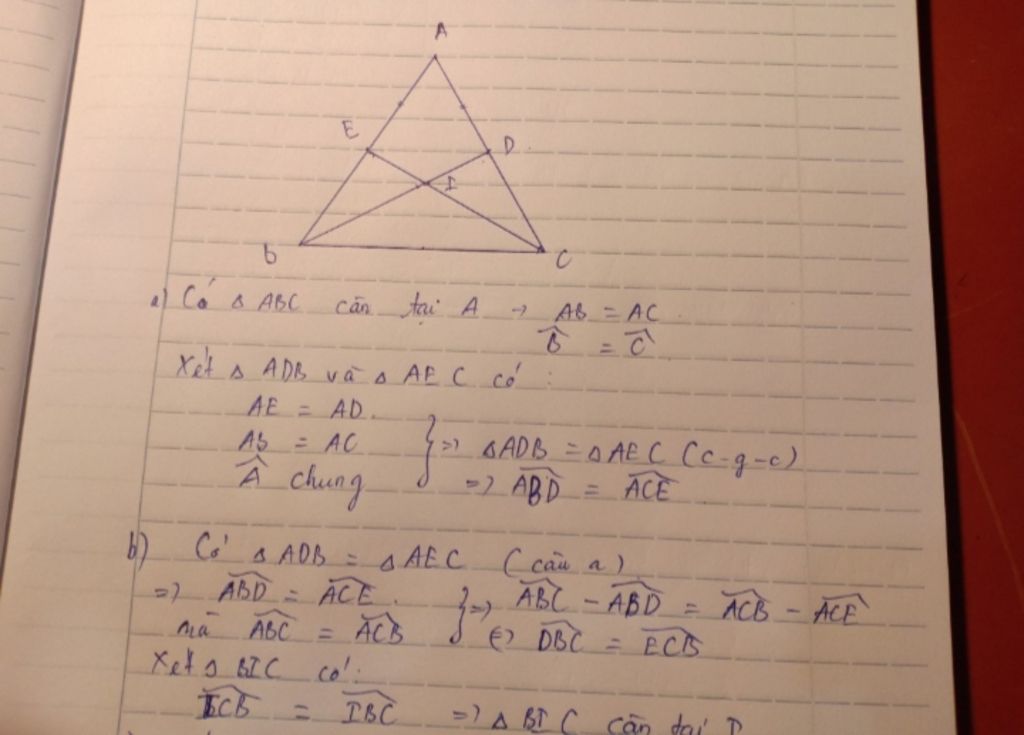 A
E
D
I
B
C
a) Có △ ABC cân tại A → AB = AC
B̂ = Ĉ
Xét △ ADB và △ AEC có :
AE = AD.
AB = AC } => △ADB = △AEC (c-g-c)
Â chung => \widehat{ABD} = \widehat{ACE}
b) Có △ ADB = △ AEC (câu a)
=> \widehat{ABD} = \widehat{ACE} . } => \widehat{ABC} - \widehat{ABD} = \widehat{ACB} - \widehat{ACE}
mà \widehat{ABC} = \widehat{ACB} <=> \widehat{DBC} = \widehat{ECB}
Xét △ BIC có:
\widehat{ICB} = \widehat{IBC} => △ BIC cân tại I